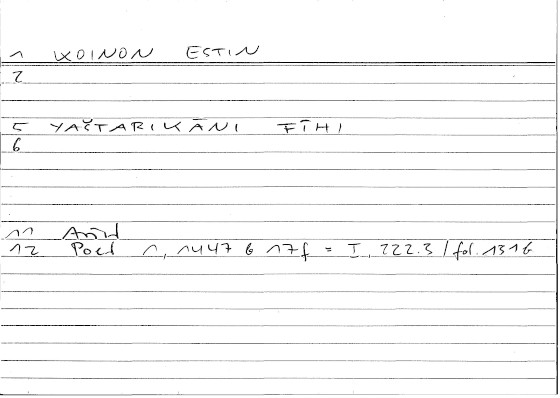 1 KOINON ESTIN
2
5 YAŠTARIKĀNI FĪHI
6
11 Arist
12 Poet 1, 1447 b 17f = I, 222.3 / fol. 131b